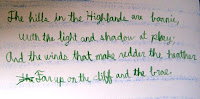 The hills in the Highlands are bonnie,
with the light and shadow at play;
And the winds that make redder the heather
Far up on the cliff and the brae.